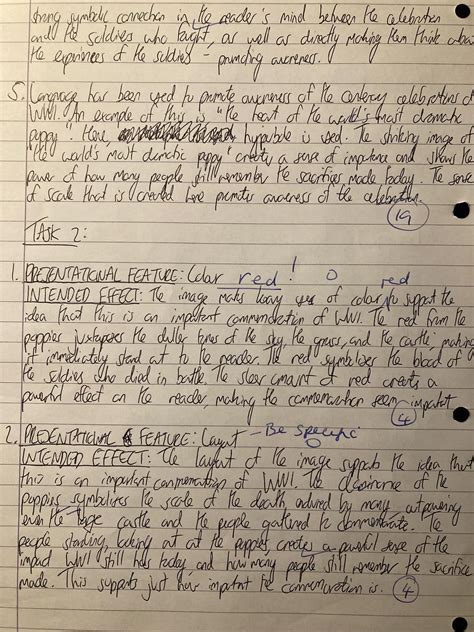 strong symbolic connection in the reader's mind between the celebration
and the soldiers who fought, as well as directly making them think about
the experiences of the soldiers - promoting awareness.
5. Language has been used to promote awareness of the centenary celebrations of
WWI. An example of this is "the heart of the world's most dramatic
poppy". Here, hyperbole is used. The striking image of
"the world's most dramatic poppy" creates a sense of importance and shows the
power of how many people still remember the sacrifices made today. The sense
of scale that is created here promotes awareness of the celebration.
19
TASK 2:
1. PRESENTATIONAL FEATURE: Colour red! red
INTENDED EFFECT: The image makes heavy use of colour to support the
idea that this is an important commemoration of WWI. The red from the
poppies juxtaposes the duller tones of the sky, the grass, and the castle, making
it immediately stand out to the reader. The red symbolises the blood of
the soldiers who died in battle. The sheer amount of red creates a
powerful effect on the reader, making the commemoration seem important
4
2. PRESENTATIONAL FEATURE: Layout - Be Specific
INTENDED EFFECT: The layout of the image supports the idea that
this is an important commemoration of WWI. The dominance of the
poppies symbolizes the scale of the death endured by many, outpowering
even the large castle and the people gathered to commemorate. The
people standing looking out at the poppies creates a powerful sense of the
impact WWI still has today and how many people still remember the sacrifice
made. This supports just how important the commemoration is. 4